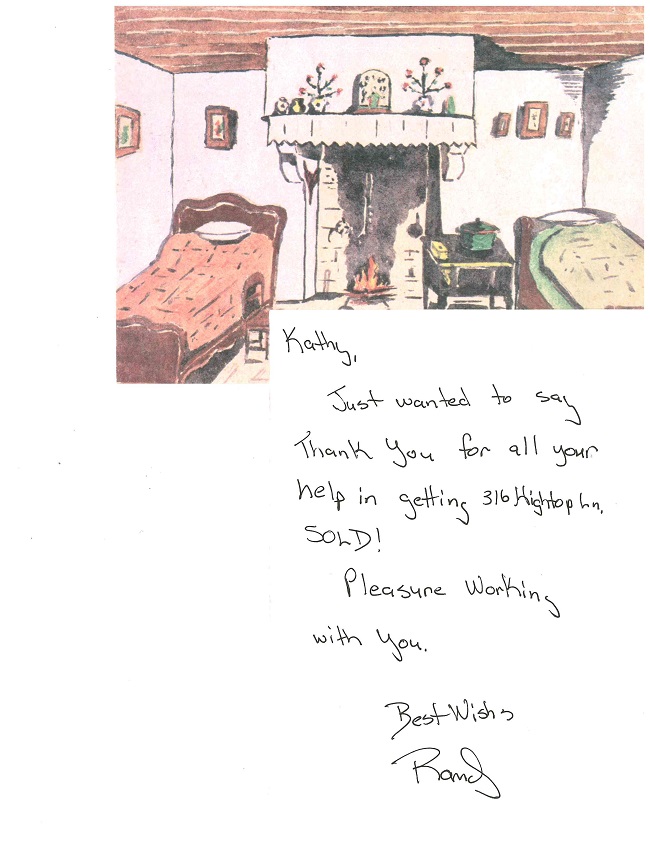 Kathy,
Just wanted to say
Thank You for all your
help in getting 316 Hightop Ln,
SOLD!
Pleasure Working
with You.
Best Wishs
Randy